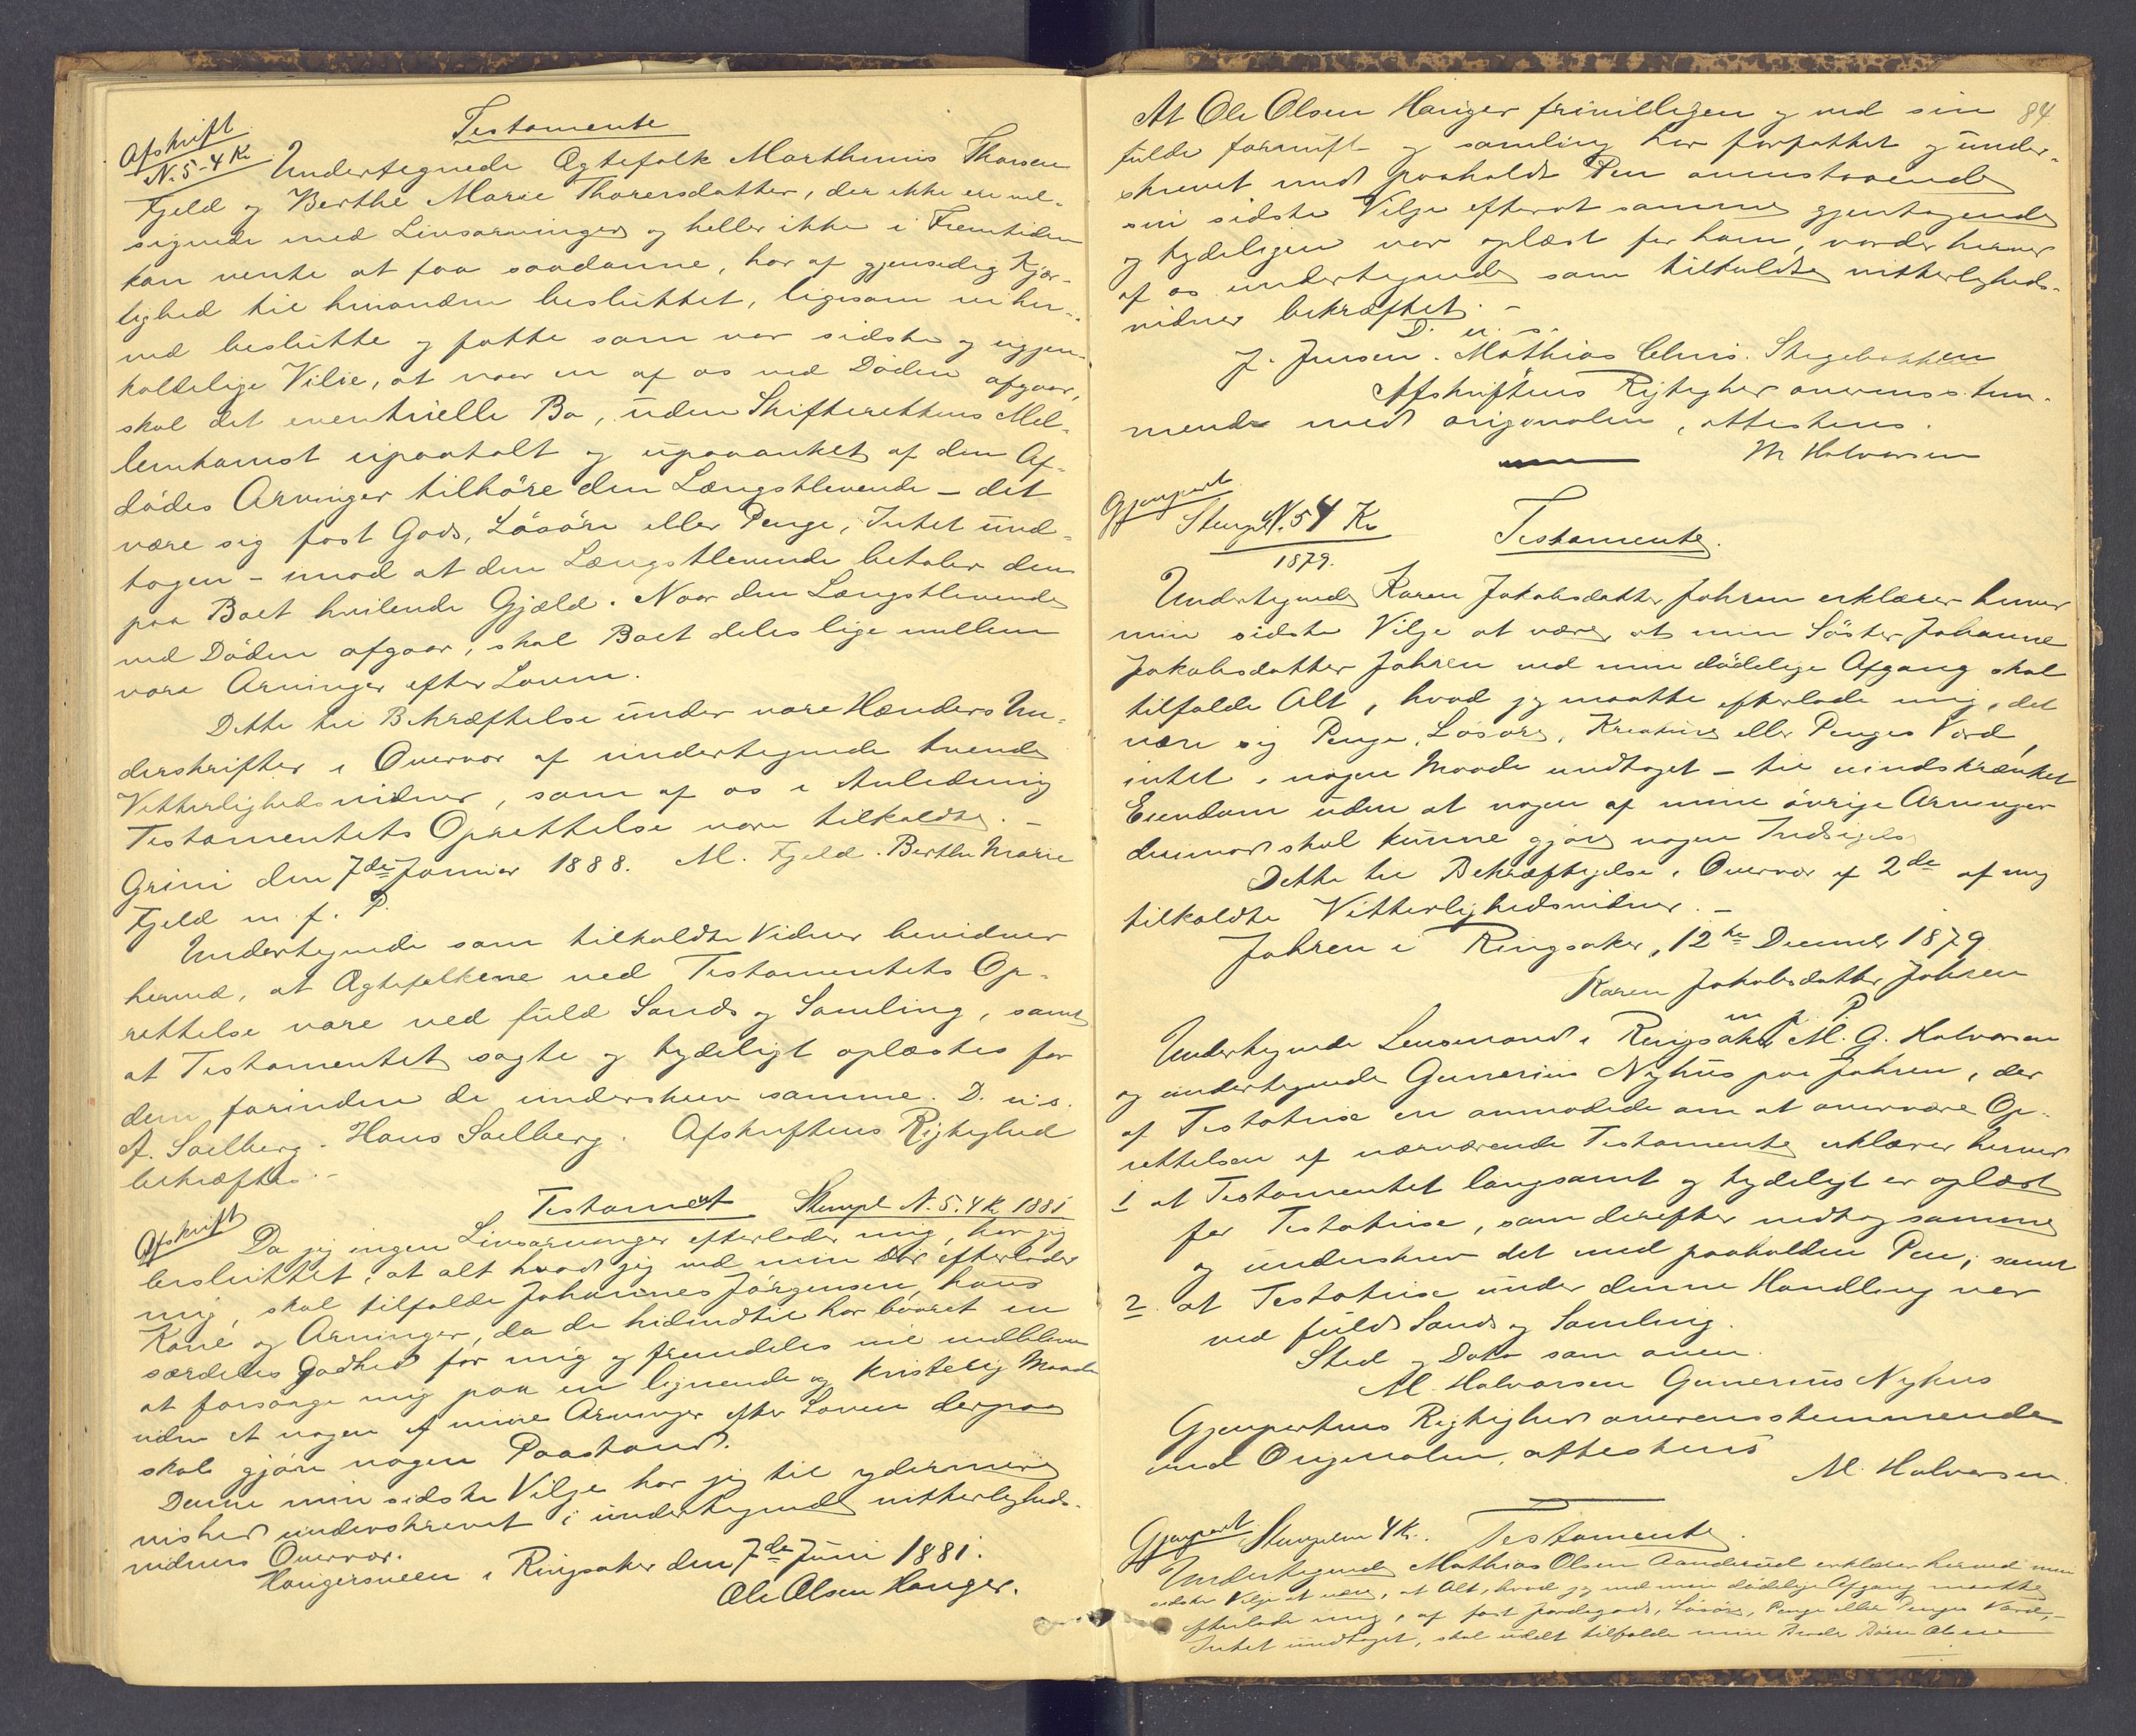 Testamente
Afskrift
N. 5 - 4 Kr
Undertegnede Ægtefolk Marthinus Thorsen
Fjeld og Berthe Marie Thorersdatter, der ikke ere vel-
signede med Livsarvinger og heller ikke i Fremtiden
kan vente at faa saadanne, har af gjensidig Kjær-
lighed til hinanden besluttet, ligesom vi her-
ved beslutte og fatte som vor sidste og ugjen-
kaldelige Vilie, at naar en af os ved Döden afgaar,
skal det eventuelle Bo, uden Skifterettens Mel-
lemkomst upaatalt og upaaanket af den Af-
dödes Arvinger tilhöre den Længstlevende - det
være sig fast Gods, Lösöre eller Penge, Intet und-
tagen - imod at den Længstlevende betaler den
paa Boet hvilende Gjæld. Naar den Længstlevende
ved Döden afgaar, skal Boet deles lige mellem
vore Arvinger efter Loven.
Dette til Bekræftelse under vore Hænders Un-
derskrifter i Overvær af undertegnede tvende
Vitterlighedsvidner, som af os i Anledning
Testamentets Oprettelse vare tilkaldte. -
Grini den 7de Januar 1888. M. Fjeld. Berthe Marie
Fjeld m. f. P.
Undertegnede som tilkaldte Vidner bevidner
herved, at Ægtefolkene ved Testamentets Op-
rettelse vare ved fuld Sands og Samling, samt
at Testamentet sagte og tydeligt oplæstes for
dem, forinden de underskrev samme. D. u. s.
A. Saelberg. Hans Saelberg. Afskriftens Rigtighed
bekræftes. -
Testament Stempl N. 5. 4 Kr. 1881
Afskrift
Da jeg ingen Livsarvinger efterlader mig, har jeg
besluttet, at alt hvad jeg ved min Död efterlader
mig, skal tilfalde Johannes Jörgensen, hans
Kone og Arvinger, da de hidindtil har baaret en
særdeles Godhed for mig og fremdeles vil vedblive
at forsörge mig paa en lignende og kristelig Maade
uden at nogen af mine Arvinger efter Loven derpaa
skal gjöre nogen Paastand.
Denne min sidste Vilje har jeg til ydermere
vished underskrevet i undertegnede vitterligheds-
vidners Overvær.
Haugersveen i Ringsaker den 7de Juni 1881.
Ole Olsen Hauger.
84
At Ole Olsen Hauger frivilligen og ved sin
fulde fornuft og samling har forfattet og under-
skrevet med paaholdt Pen ovenstaaende
sin sidste Vilje efterat samme gjentagende
og tydeligen var oplæst for ham, vorder herved
af os undertegnede som tilkaldte vitterligheds-
vidner bekræftet. -
D. u. s.
J. Jensen. Mathias Chris. Stegebakken
Afskriftens Rigtighed overensstem-
mende med originalen, attesteres.
M Halvorsen
Gjenpart
Stempl N. 5 4 Kr
1879.
Testamente.
Undertegnede Karen Jakobsdatter Jahren erklærer herved
min sidste Vilje at være, at min Söster Johanne
Jakobsdatter Jahren ved min dödelige Afgang skal
tilfalde Alt, hvad jeg maatte efterlade mig, det
være sig Penge, Lösöre, Kreature eller Penges Værd,
intet i nogen Maade undtaget - til uindskrænket
Eiendom uden at nogen af mine övrige Arvinger
derimod skal kunne gjöre nogen Indsigelse
Dette til Bekræftigelse i Overvær af 2de af mig
tilkaldte Vitterlighedsvidner. -
Jahren i Ringsaker, 12te December 1879
Karen Jakobsdatter Jahren
m. p. P.
Undertegnede Lensmand i Ringsaker M. G. Halvorsen
og undertegnede Gunerius Nyhus paa Jahren, der
af Testatrise er anmodede om at overvære Op-
rettelsen af nærværende Testamente erklærer herved
1 at Testamentet langsomt og tydeligt er oplæst
for Testatrise, som derefter vedtog samme
og underskrev det med paaholden Pen; samt
2. at Testatrise under denne Handling var
ved fuld Sands og Samling.
Sted og Dato som oven.
M. Halvorsen Gunerius Nyhus
Gjenpartens Rigtighed overensstemmende
med Originalen, attesteres
M. Halvorsen.
Gjenpart Stempelm 4 Kr. Testamente.
Undertegnede Mathias Olsen Aanderud erklærer herved min
sidste Vilje at være, at Alt, hvad jeg ved min dödelige Afgang maatte
efterlade mig, af fast Jordegods, Lösöre, Penge eller Penges Værd, -
Intet undtaget, skal udelt tilfalde min Broder Olsen